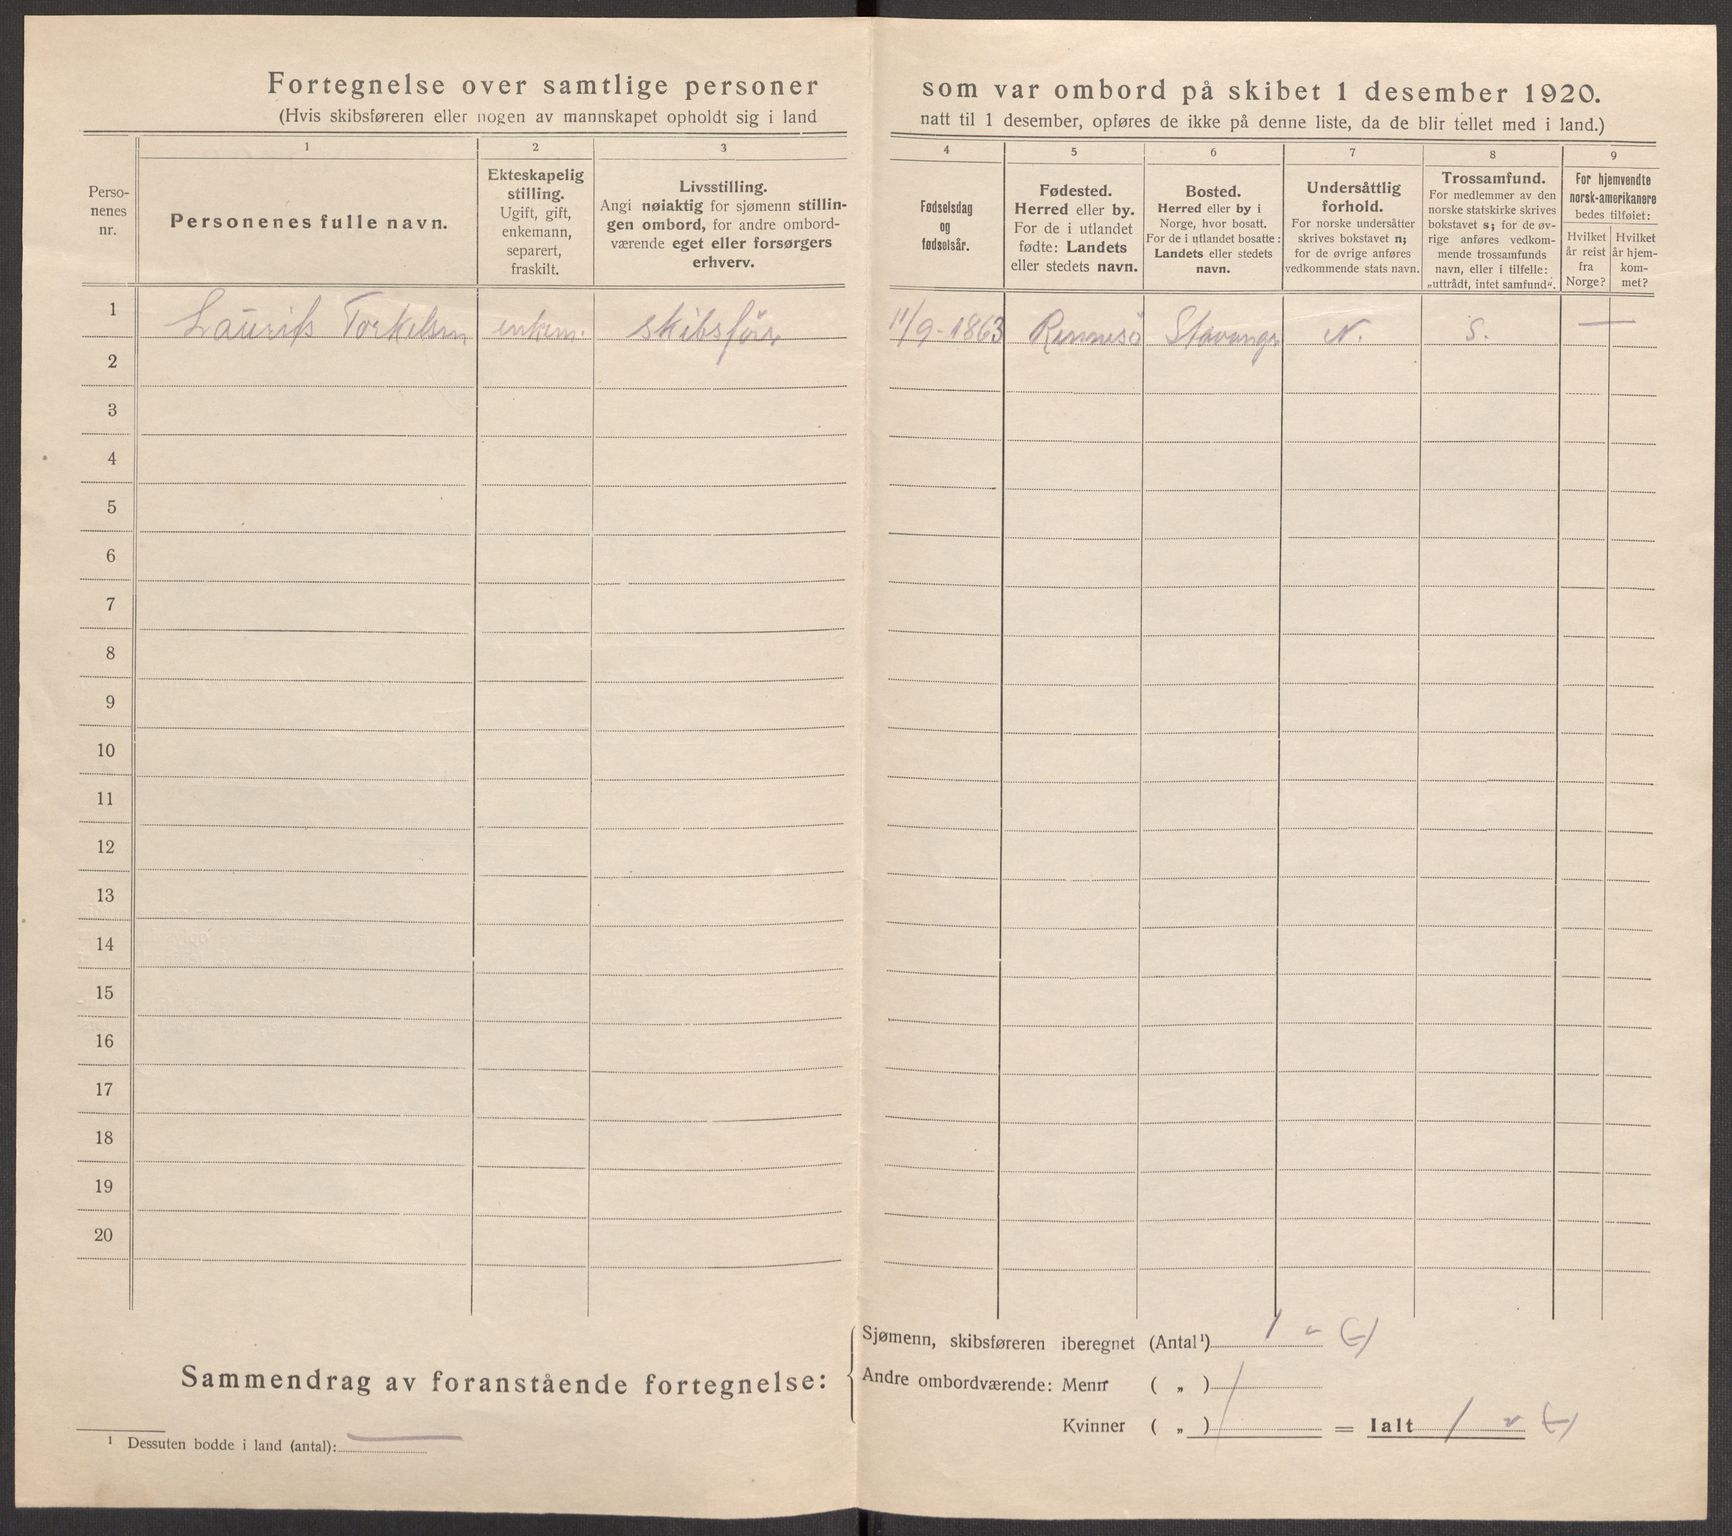 Fortegnelse over samtlige personer som var ombord på skibet 1 desember 1920.
(Hvis skibsføreren eller nogen av mannskapet opholdt sig i land natt til 1 desember, opføres de ikke på denne liste, da de blir tellet med i land.)
1 2 3 4 5 6 7 8 9
Perso-
nenes
nr.
Personenes fulle navn.
Ekteskapelig
stilling.
Ugift, gift,
enkemann,
separert,
fraskilt.
Livsstilling.
Angi nøiaktig for sjømenn stillin-
gen ombord, for andre ombord-
værende eget eller forsørgers
erhverv.
Fødselsdag
og
fødselsår.
Fødested.
Herred eller by.
For de i utlandet
fødte: Landets
eller stedets navn.
Bosted.
Herred eller by i
Norge, hvor bosatt.
For de i utlandet bosatte:
Landets eller stedets
navn.
Undersåttlig
forhold.
For norske undersåtter
skrives bokstavet n;
for de øvrige anføres
vedkommende stats navn.
Trossamfund.
For medlemmer av den
norske statskirke skrives
bokstavet s; for de øv-
rige anføres vedkom-
mende trossamfunds
navn, eller i tilfelle:
„uttrådt, intet samfund“.
For hjemvendte
norsk-amerikanere
bedes tilføiet:
Hvilket
år reist
fra
Norge?
Hvilket
år hjem-
kom-
met?
1 Laurits Torkelsen enkem. skibsfører 11/9-1863 Rennesö Stavanger N. S. —
2
3
4
5
6
7
8
9
10
11
12
13
14
15
16
17
18
19
20
Sammendrag av foranstående fortegnelse:
Sjømenn, skibsføreren iberegnet (Antal¹) 1
Andre ombordværende: Menn ( „ )
Kvinner ( „ ) = Ialt 1
¹ Dessuten bodde i land (antal): —